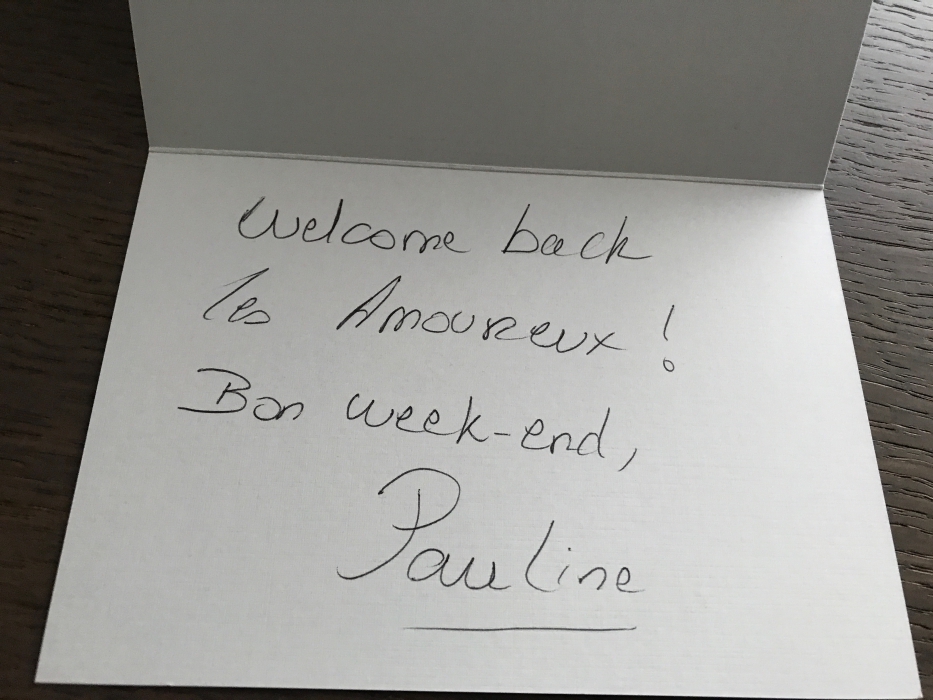 Welcome back
les Amoureux !
Bon week-end,
Pauline